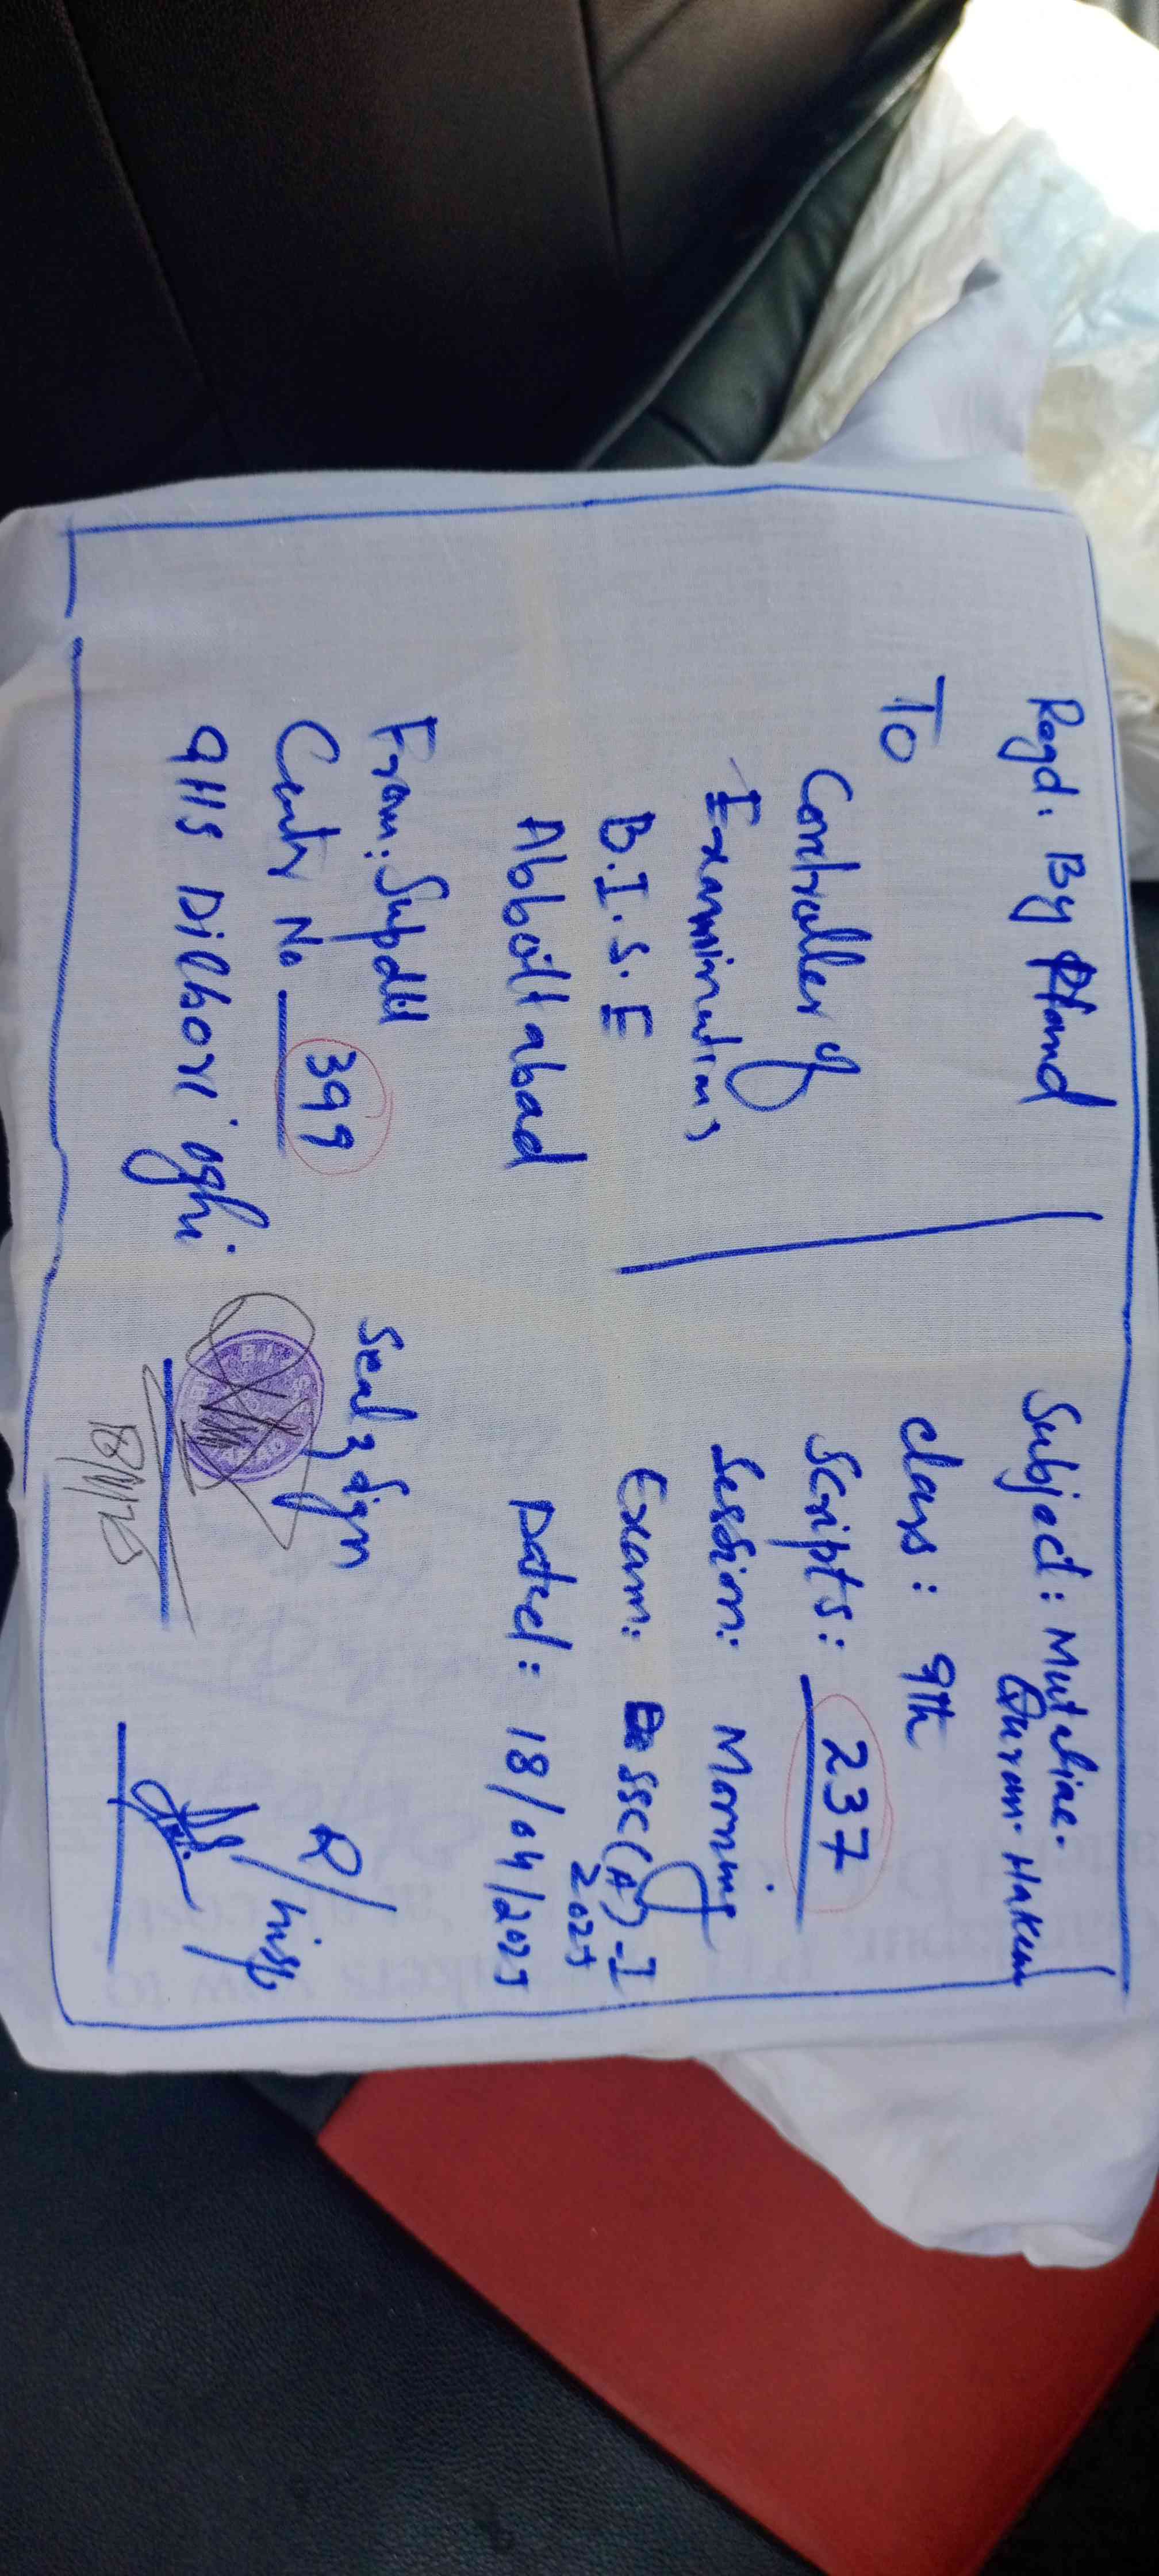 Regd. By Hand
To
Controller of
Examinations
B.I.S.E
Abbottabad
From: Supdtt
Centr No 399
GHS Dilbori oghi
Subject: Mutaliae.
Quran. Hakeem
class: 9th
Scripts: 237
Session: Morning
Exam: SSC(A)-I
2025
Dated: 18/04/2025
Seal & Sign
B.I.S.E